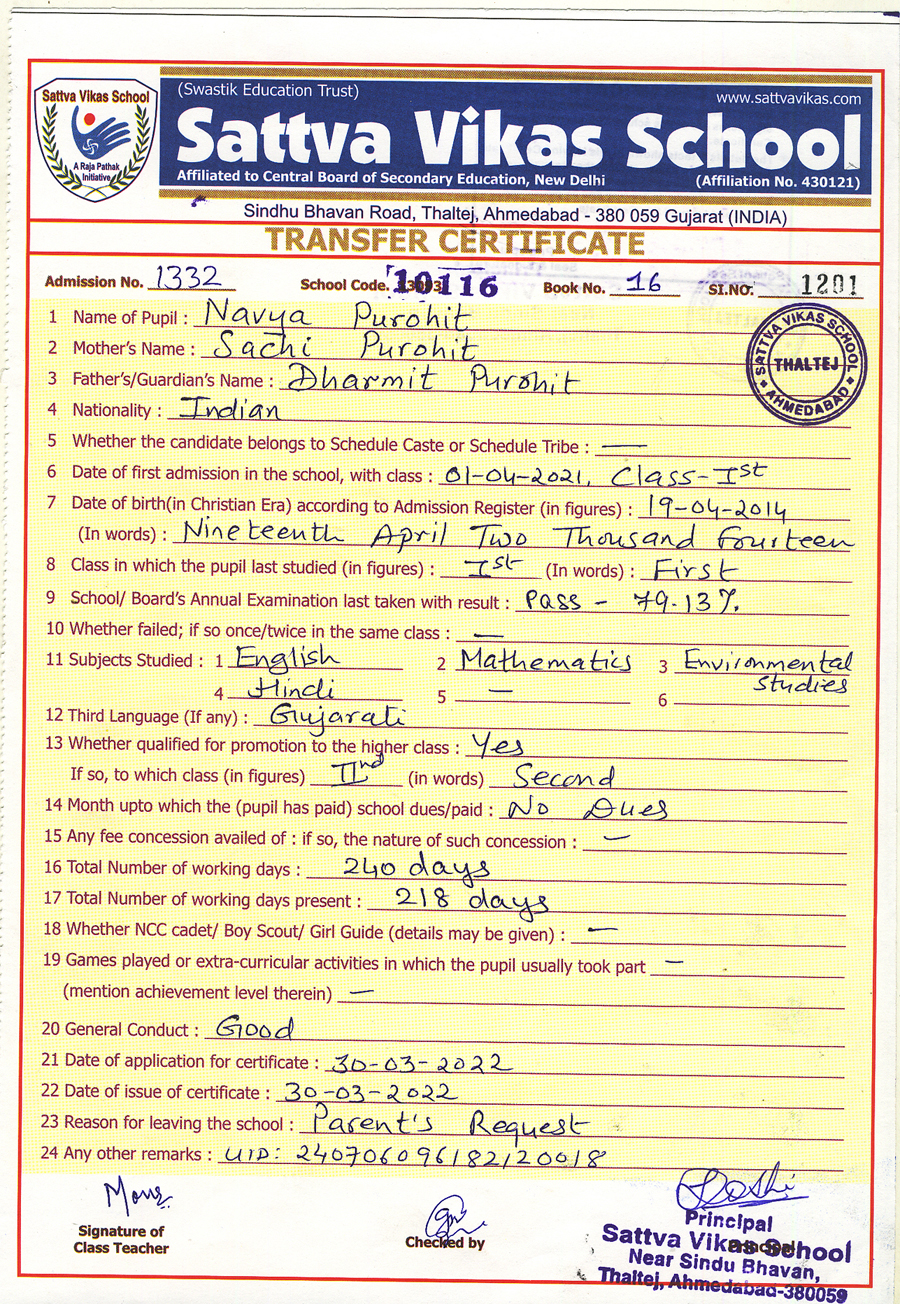 Sattva Vikas School
A Raja Pathak
Initiative
(Swastik Education Trust)
www.sattvavikas.com
Sattva Vikas School
Affiliated to Central Board of Secondary Education, New Delhi (Affiliation No. 430121)
Sindhu Bhavan Road, Thaltej, Ahmedabad - 380 059 Gujarat (INDIA)
TRANSFER CERTIFICATE
Admission No. 1332 School Code. 10116 Book No. 16 SI.NO. 1201
SATTVA VIKAS SCHOOL
THALTEJ
AHMEDABAD
1 Name of Pupil : Navya Purohit
2 Mother's Name : Sachi Purohit
3 Father's/Guardian's Name : Dharmit Purohit
4 Nationality : Indian
5 Whether the candidate belongs to Schedule Caste or Schedule Tribe : —
6 Date of first admission in the school, with class : 01-04-2021, Class-Ist
7 Date of birth(in Christian Era) according to Admission Register (in figures) : 19-04-2014
(In words) : Nineteenth April Two Thousand Fourteen
8 Class in which the pupil last studied (in figures) : Ist (In words) : First
9 School/ Board's Annual Examination last taken with result : Pass - 79.13%
10 Whether failed; if so once/twice in the same class : —
11 Subjects Studied : 1 English 2 Mathematics 3 Environmental
4 Hindi 5 — 6 Studies
12 Third Language (If any) : Gujarati
13 Whether qualified for promotion to the higher class : Yes
If so, to which class (in figures) IInd (in words) Second
14 Month upto which the (pupil has paid) school dues/paid : No Dues
15 Any fee concession availed of : if so, the nature of such concession : —
16 Total Number of working days : 240 days
17 Total Number of working days present : 218 days
18 Whether NCC cadet/ Boy Scout/ Girl Guide (details may be given) : —
19 Games played or extra-curricular activities in which the pupil usually took part —
(mention achievement level therein) —
20 General Conduct : Good
21 Date of application for certificate : 30-03-2022
22 Date of issue of certificate : 30-03-2022
23 Reason for leaving the school : Parent's Request
24 Any other remarks : UID: 240706096182120018
Signature of
Class Teacher
Checked by
Principal
Sattva Vikas School
Near Sindu Bhavan,
Thaltej, Ahmedabad-380059